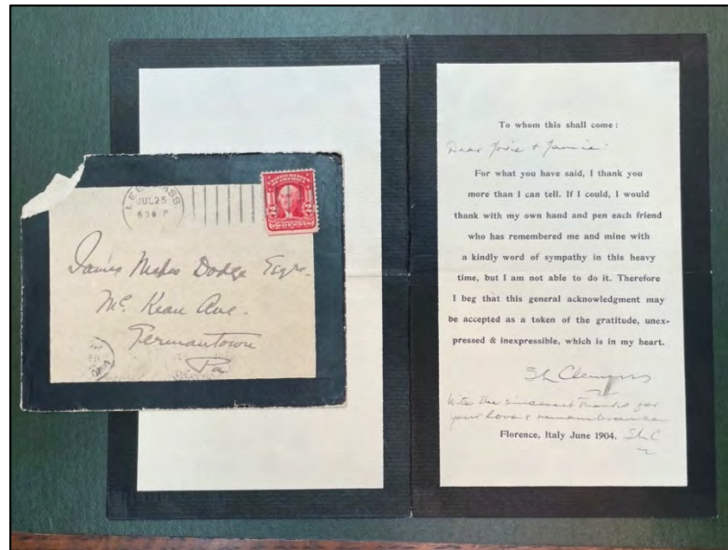 LEE, MASS.
JUL 25
630 P
2
James Mapes Dodge Esqre.
Mc. Kean Ave.
Germantown
Pa
To whom this shall come:
Dear Josie & Jamie
For what you have said, I thank you
more than I can tell. If I could, I would
thank with my own hand and pen each friend
who has remembered me and mine with
a kindly word of sympathy in this heavy
time, but I am not able to do it. Therefore
I beg that this general acknowledgment may
be accepted as a token of the gratitude, unex-
pressed & inexpressible, which is in my heart.
SL Clemens
With the sincerest thanks for
your love & remembrance
Florence, Italy June 1904. SLC